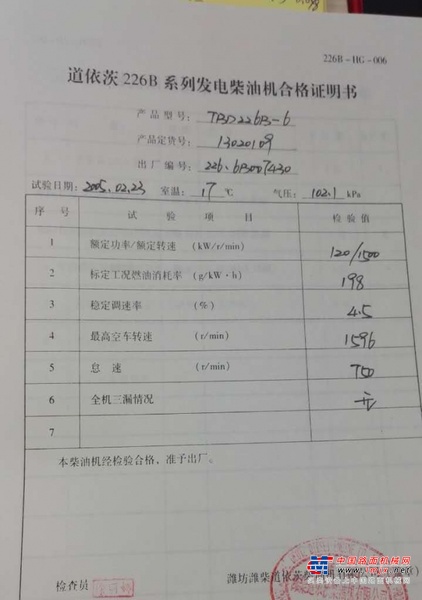 226B-HG-006
道依茨 226B 系列发电柴油机合格证明书
产品型号： TBD226B-6
产品定货号： 13020109
出厂编号： 226.6B007430
试验日期：2005.02.23 室温：17 ℃ 气压：102.1 kPa
序 号 试 验 项 目 检 验 值
1 额定功率/额定转速 (kW/r/min) 120/1500
2 标定工况燃油消耗率 (g/kW·h) 198
3 稳定调速率 (%) 4.5
4 最高空车转速 (r/min) 1596
5 怠 速 (r/min) 750
6 全机三漏情况 无
7
本柴油机经检验合格，准予出厂。
检查员
潍坊潍柴道依茨柴油机有限公司
中国路面机械网